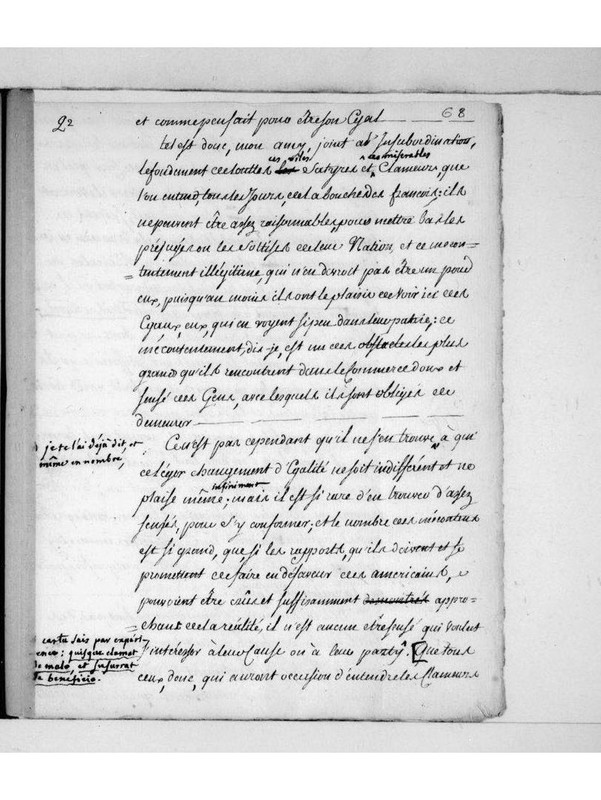 22
68
et comme pensait pour être son Egal
tel est donc, mon amy, joint à l'Insubordination,
le fondement de toutes les Satyres et Clameurs, que
ces viles
ces miserables
l'on entend tous les Jours, de la bouche des françois: ils
ne peuvent être assez raisonnables, pour mettre bas les
préjugés ou les Sottises de leur Nation, et ce mécon=
=tentement illégitime, qui n'en devroit pas être un pour
eux, puisqu'au moins ils ont le plaisir de voir ici des
Egaux, eux, qui en voyent si peu dans leur patrie; ce
mécontentement, dis-je, est un des obstacles les plus
grands qu'ils rencontrent dans le Commerce doux et
sensé des Gens, avec lesquels ils sont obligés de
demeurer
Ce n'est pas cependant qu'il ne s'en trouve, à qui
je te l'ai déjà dit, et
même en nombre,
ce léger changement d'Egalité ne soit indifférent et ne
plaise même: mais il est si rare d'en trouver d'assez
infiniment
sensés, pour s'y conformer; et le nombre des mécontens
est si grand, que si les rapports, qu'ils doivent et se
promettent de faire en défaveur des americains,
pouvoient être crus et suffisamment demontrés appro=
=chant de la réalité, il n'est aucun être sensé qui voulut
s'intéresser à leur Cause ou à leur party. Que tous
car tu sais par expéri-
ence: quisque clamat
de malo, et susurrat
de beneficio.
ceux, donc, qui auront occasion d'entendre les Clameurs